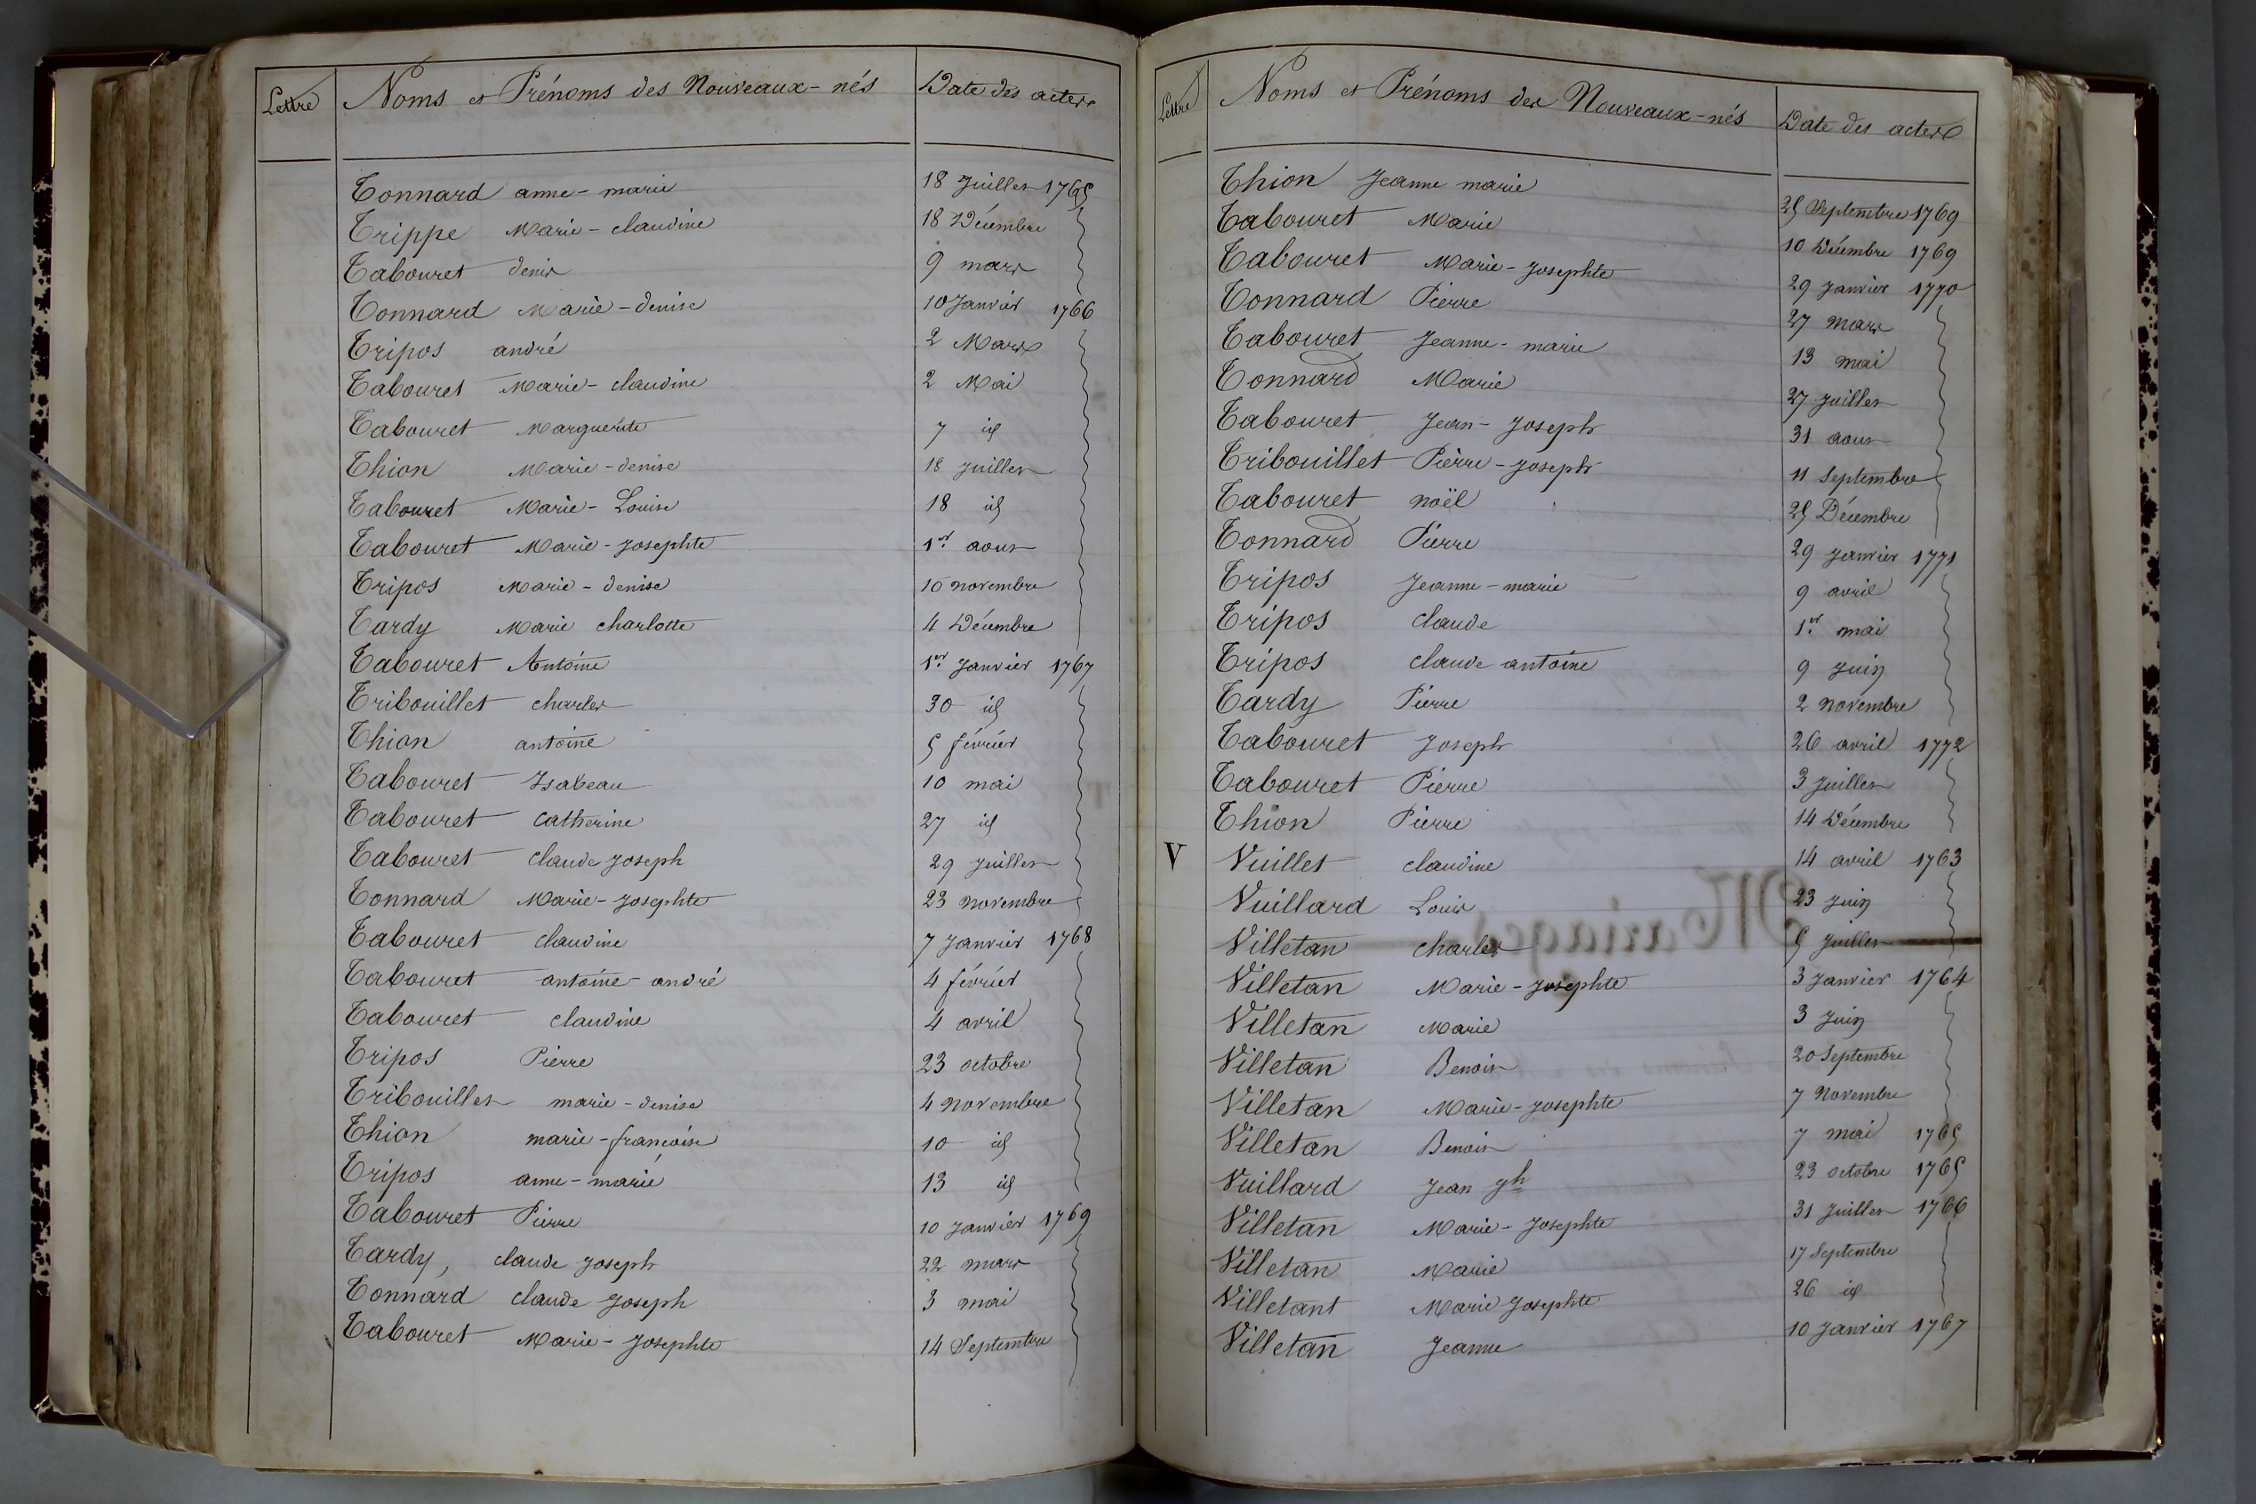 Lettre Noms et Prénoms des Nouveaux-nés Date des actes
Tonnard anne-marie 18 Juillet 1765
Trippe Marie-claudine 18 Décembre
Tabouret denis 9 mars
Tonnard Marie-denise 10 Janvier 1766
Tripos andré 2 Mars
Tabouret Marie-claudine 2 Mai
Tabouret Marguerite 7 id
Thion Marie-denise 18 juillet
Tabouret Marie-Louise 18 id
Tabouret Marie-josephte 1er aout
Tripos Marie-denise 10 novembre
Tardy Marie charlotte 4 Décembre
Tabouret Antoine 1er Janvier 1767
Tribouillet charles 30 id
Thion antoine 5 février
Tabouret Isabeau 10 mai
Tabouret catherine 27 id
Tabouret claude joseph 29 juillet
Tonnard Marie-josephte 23 novembre
Tabouret claudine 7 Janvier 1768
Tabouret antoine-andré 4 février
Tabouret claudine 4 avril
Tripos Pierre 23 octobre
Tribouillet marie-denise 4 novembre
Thion marie-francoise 10 id
Tripos anne-marie 13 id
Tabouret Pierre 10 janvier 1769
Tardy, claude joseph 22 mars
Tonnard claude joseph 3 mai
Tabouret Marie-josephte 14 Septembre
Lettre Noms et Prénoms des Nouveaux-nés Date des actes
Thion Jeanne marie 25 Septembre 1769
Tabouret Marie 10 Décembre 1769
Tabouret Marie-josephte 29 janvier 1770
Tonnard Pierre 27 mars
Tabouret Jeanne-marie 13 mai
Tonnard Marie 27 juillet
Tabouret Jean-Joseph 31 aout
Tribouillet Pierre-joseph 11 Septembre
Tabouret noël 25 Décembre
Tonnard Pierre 29 janvier 1771
Tripos Jeanne-marie 9 avril
Tripos claude 1er mai
Tripos claude antoine 9 juin
Tardy Pierre 2 novembre
Tabouret joseph 26 avril 1772
Tabouret Pierre 3 juillet
Thion Pierre 14 Décembre
V Vuillet claudine 14 avril 1763
Vuillard Louis 23 juin
Villetan charles 5 juillet
Villetan Marie-josephte 3 janvier 1764
Villetan Marie 3 juin
Villetan Benoit 20 Septembre
Villetan Marie-josephte 7 novembre
Villetan Benoit 7 mai 1765
Vuillard Jean jh 23 octobre 1765
Villetan Marie-josephte 31 juillet 1766
Villetan Marie 17 Septembre
Villetant Marie Josephte 26 id
Villetan Jeanne 10 janvier 1767